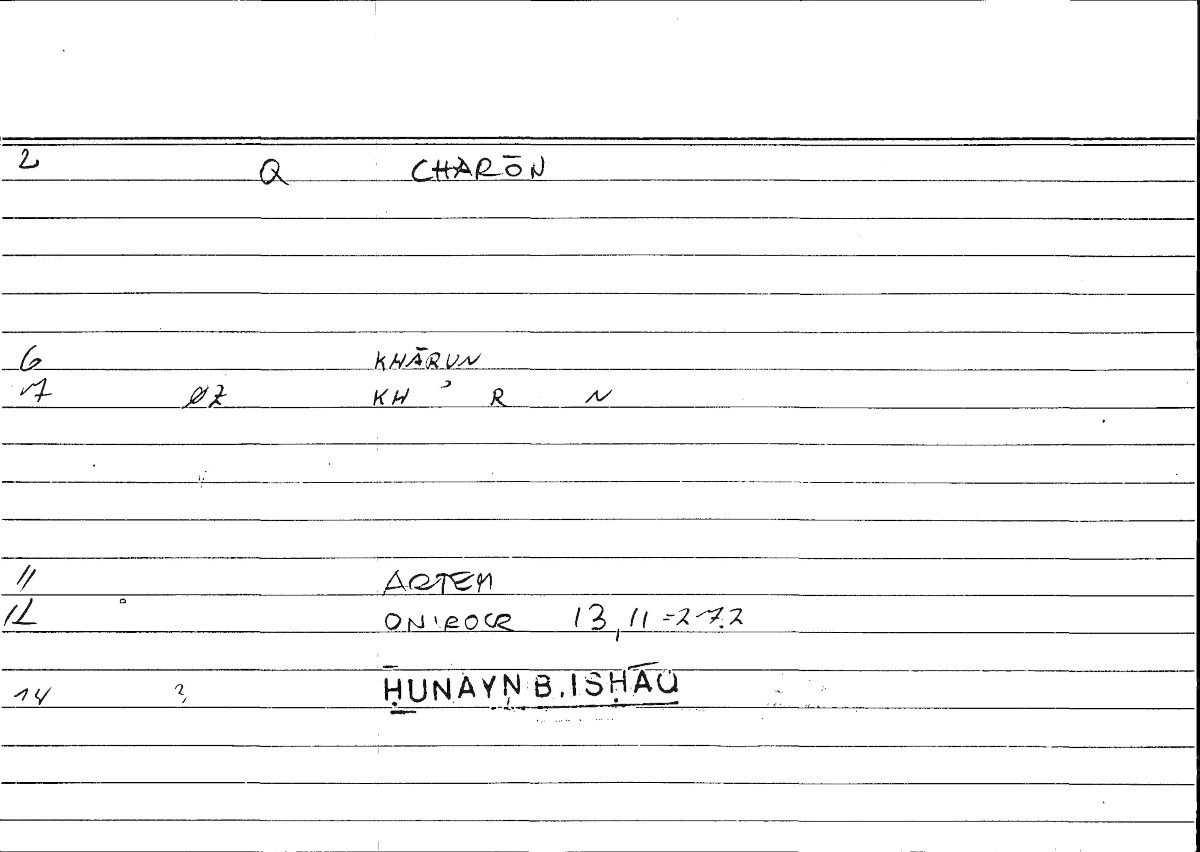 2 Q CHARŌN
6 KHĀRUN
7 ØZ KH ʾ R N
11 ARTEM
12 ° ONIROCR 13,11=27.2
14 ? ḤUNAYN B. ISḤĀQ